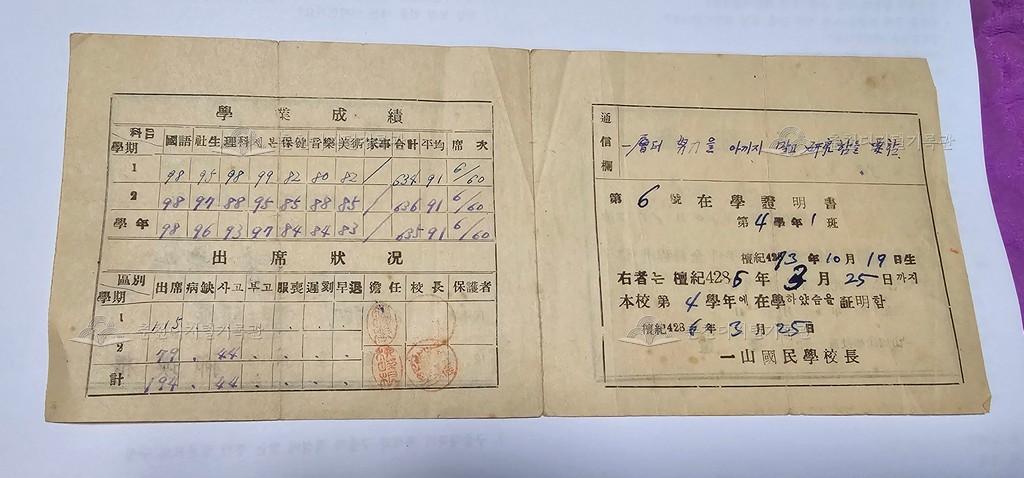 學業成績
科目 國語 社生 理科 세는 保健 音樂 美術 家事 合計 平均 席次
學期
1 98 95 98 99 82 80 82 / 634 91 6/60
2 98 97 88 95 85 88 85 / 636 91 6/60
學年 98 96 93 97 84 84 83 / 635 91 6/60
出席狀況
區別 出席 病缺 사고 부고 服喪 遲刻 早退 擔任 校長 保護者
學期
1 115 . . . . . .
2 79 . 44 . . . .
計 194 . 44 . . . .
通信欄
一層더 努力을 아끼지 말고
第6號 在學證明書
第4學年1班
檀紀4293年10月19日生
右者는 檀紀4286年3月25日까지
本校第4學年에在學하였슴을 証明함
檀紀4286年3月25日
一山國民學校長